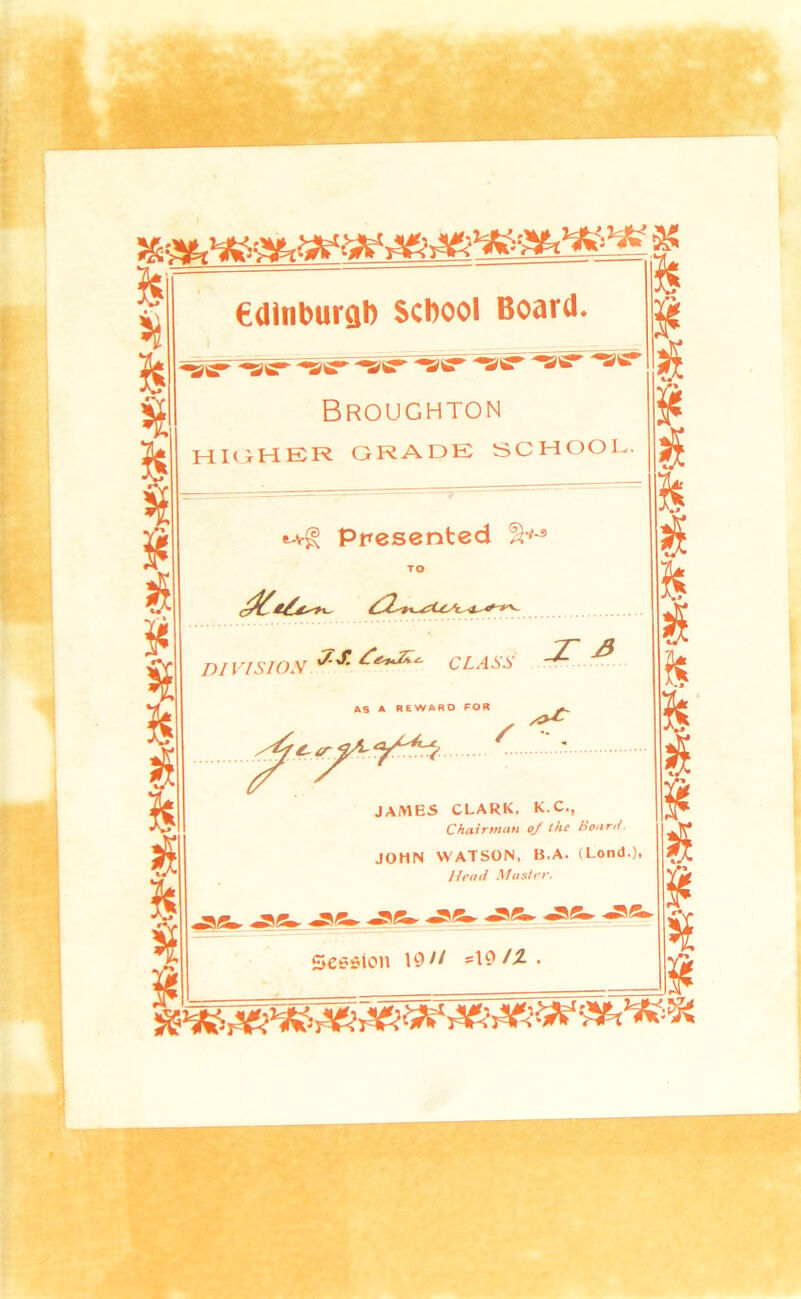 Edinburgh School Board.
BROUGHTON
HIGHER GRADE SCHOOL.
Presented
TO
Helen Anderson
DIVISION J.S. Centre CLASS I B
AS A REWARD FOR
Geography 1st
JAMES CLARK, K.C.,
Chairman of the Board.
JOHN WATSON, B.A. (Lond.),
Head Master.
Session 1911=1912.